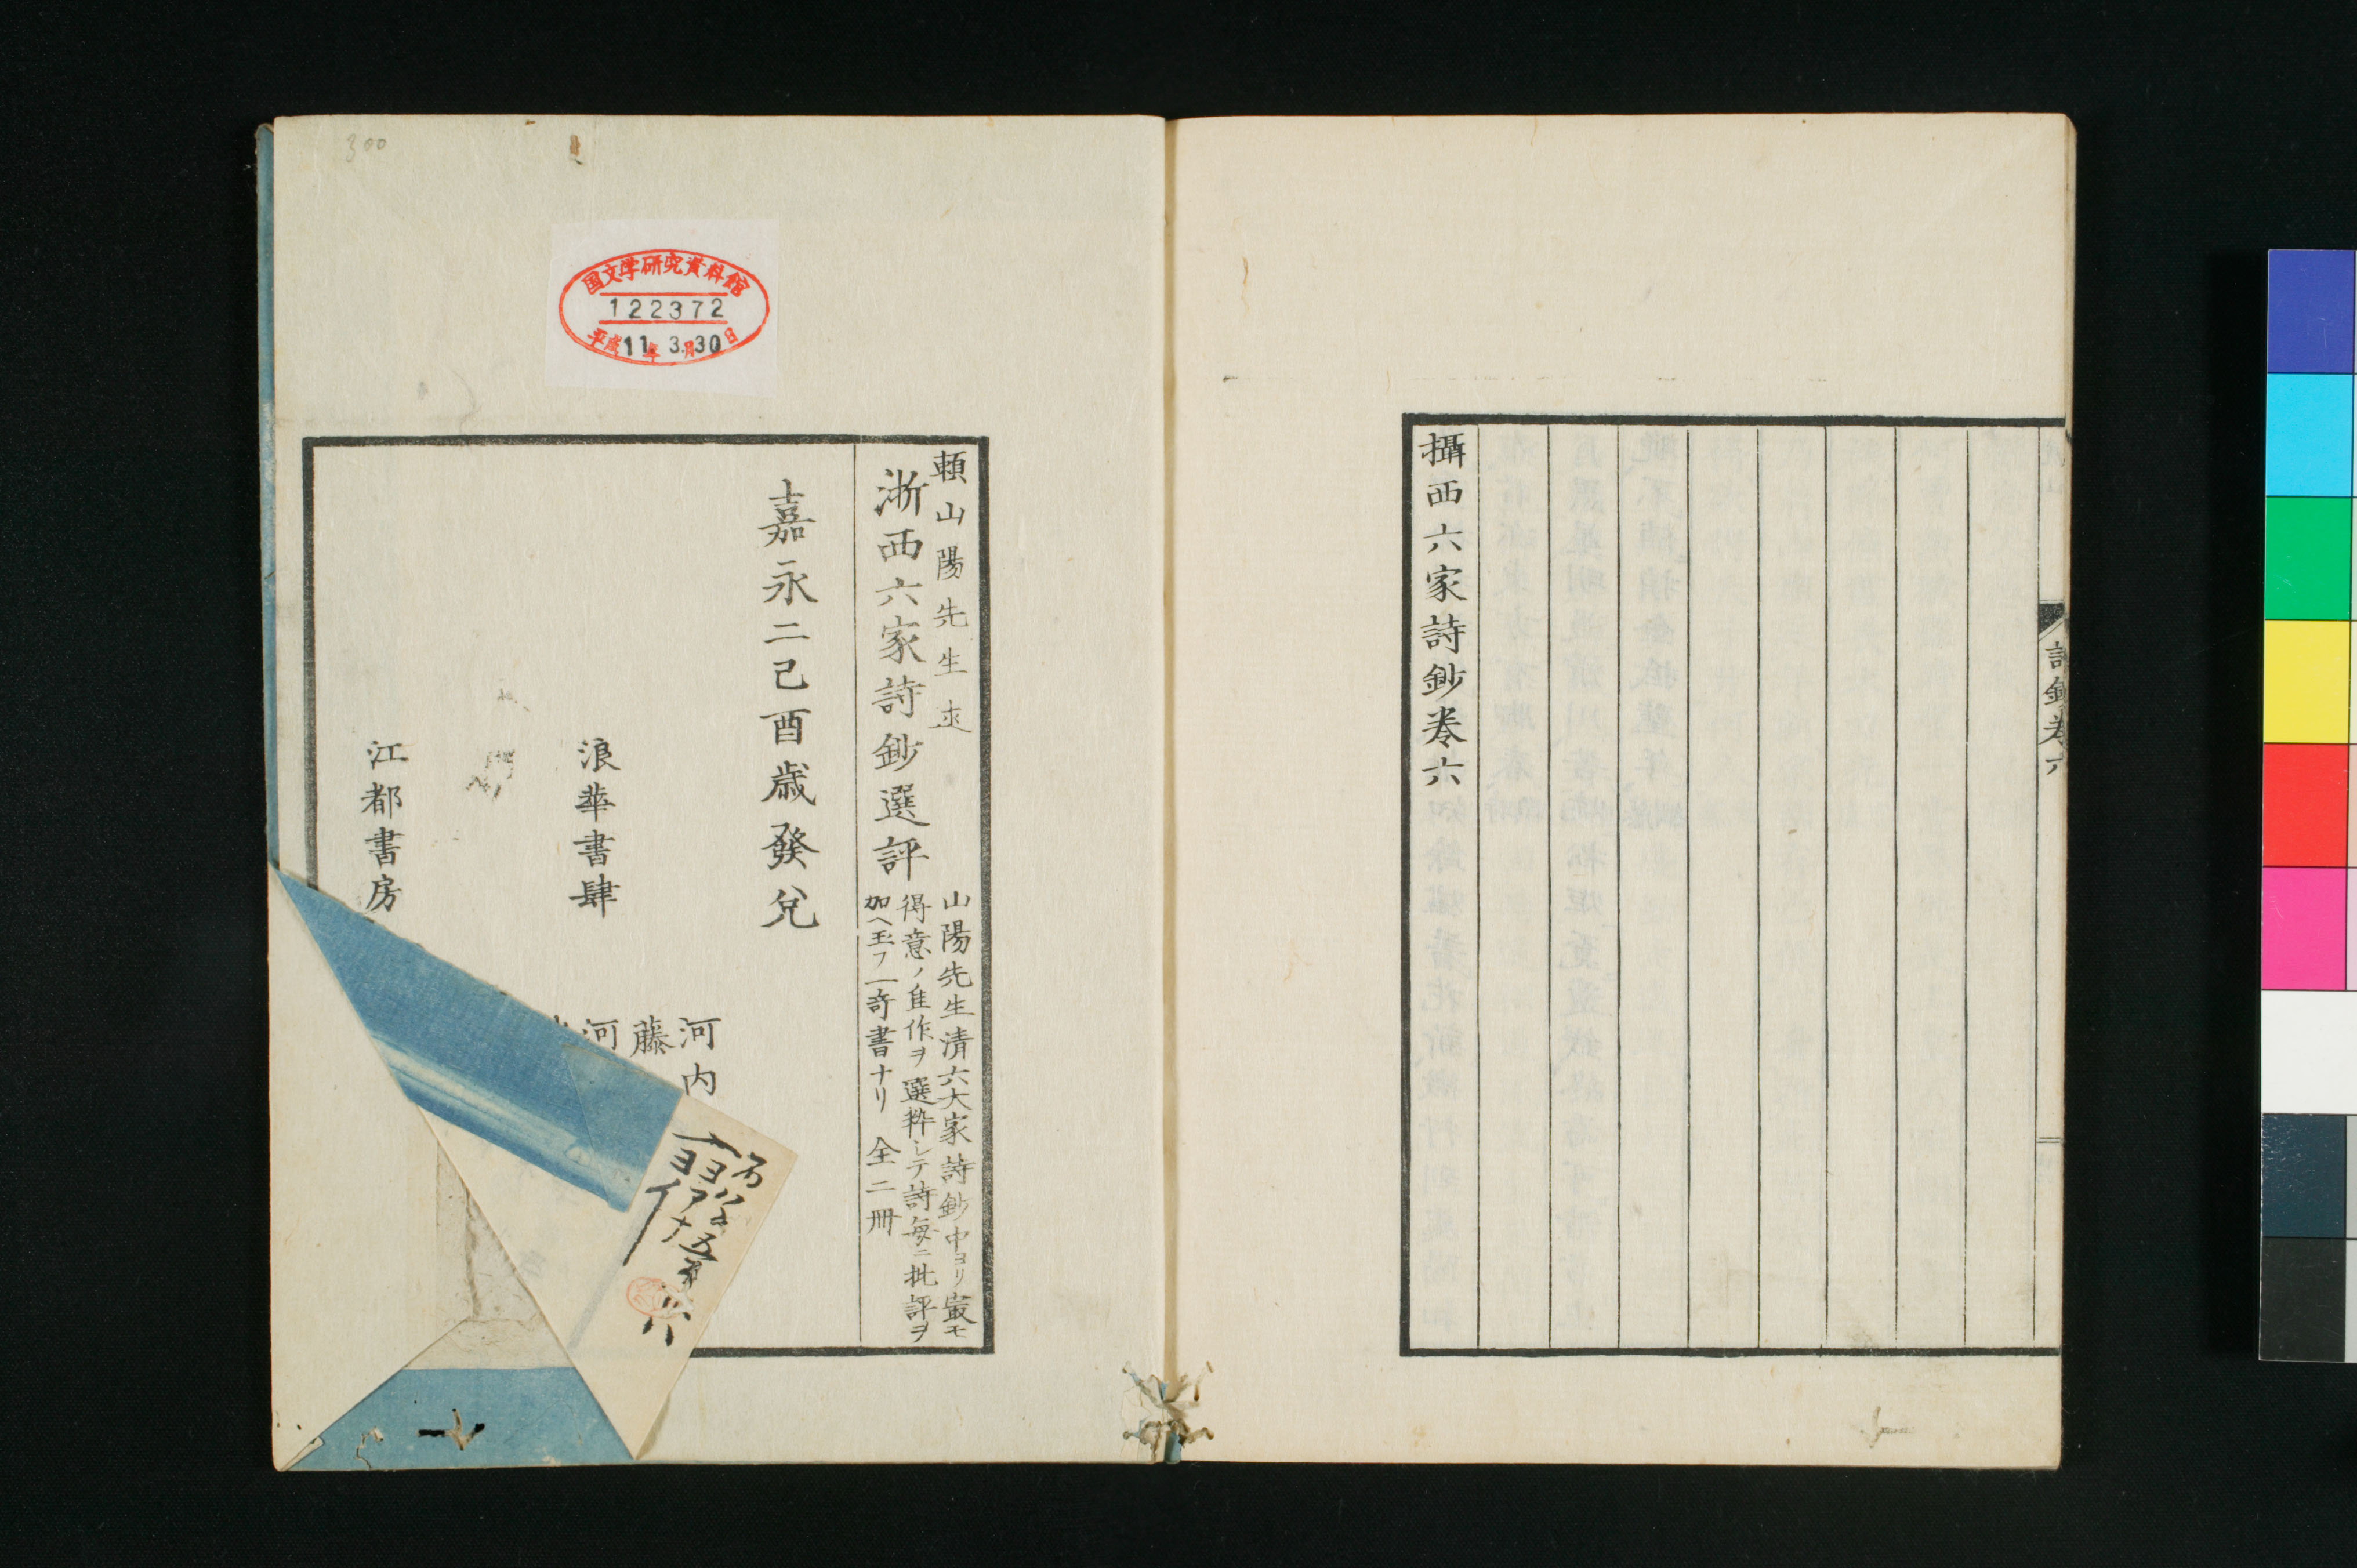 詩鈔卷六
攝西六家詩鈔卷六
300
国文学研究資料館
122372
平成11年3月30日
頼山陽先生
浙西六家詩鈔選評
山陽先生清六大家詩鈔中ヨリ冣モ
得意ノ佳作ヲ選粋シテ詩毎ニ批評ヲ
加ヘ玉フ一奇書ナリ 全二冊
嘉永二己酉歳發兌
河内
藤
浪華書肆
河
江都書房